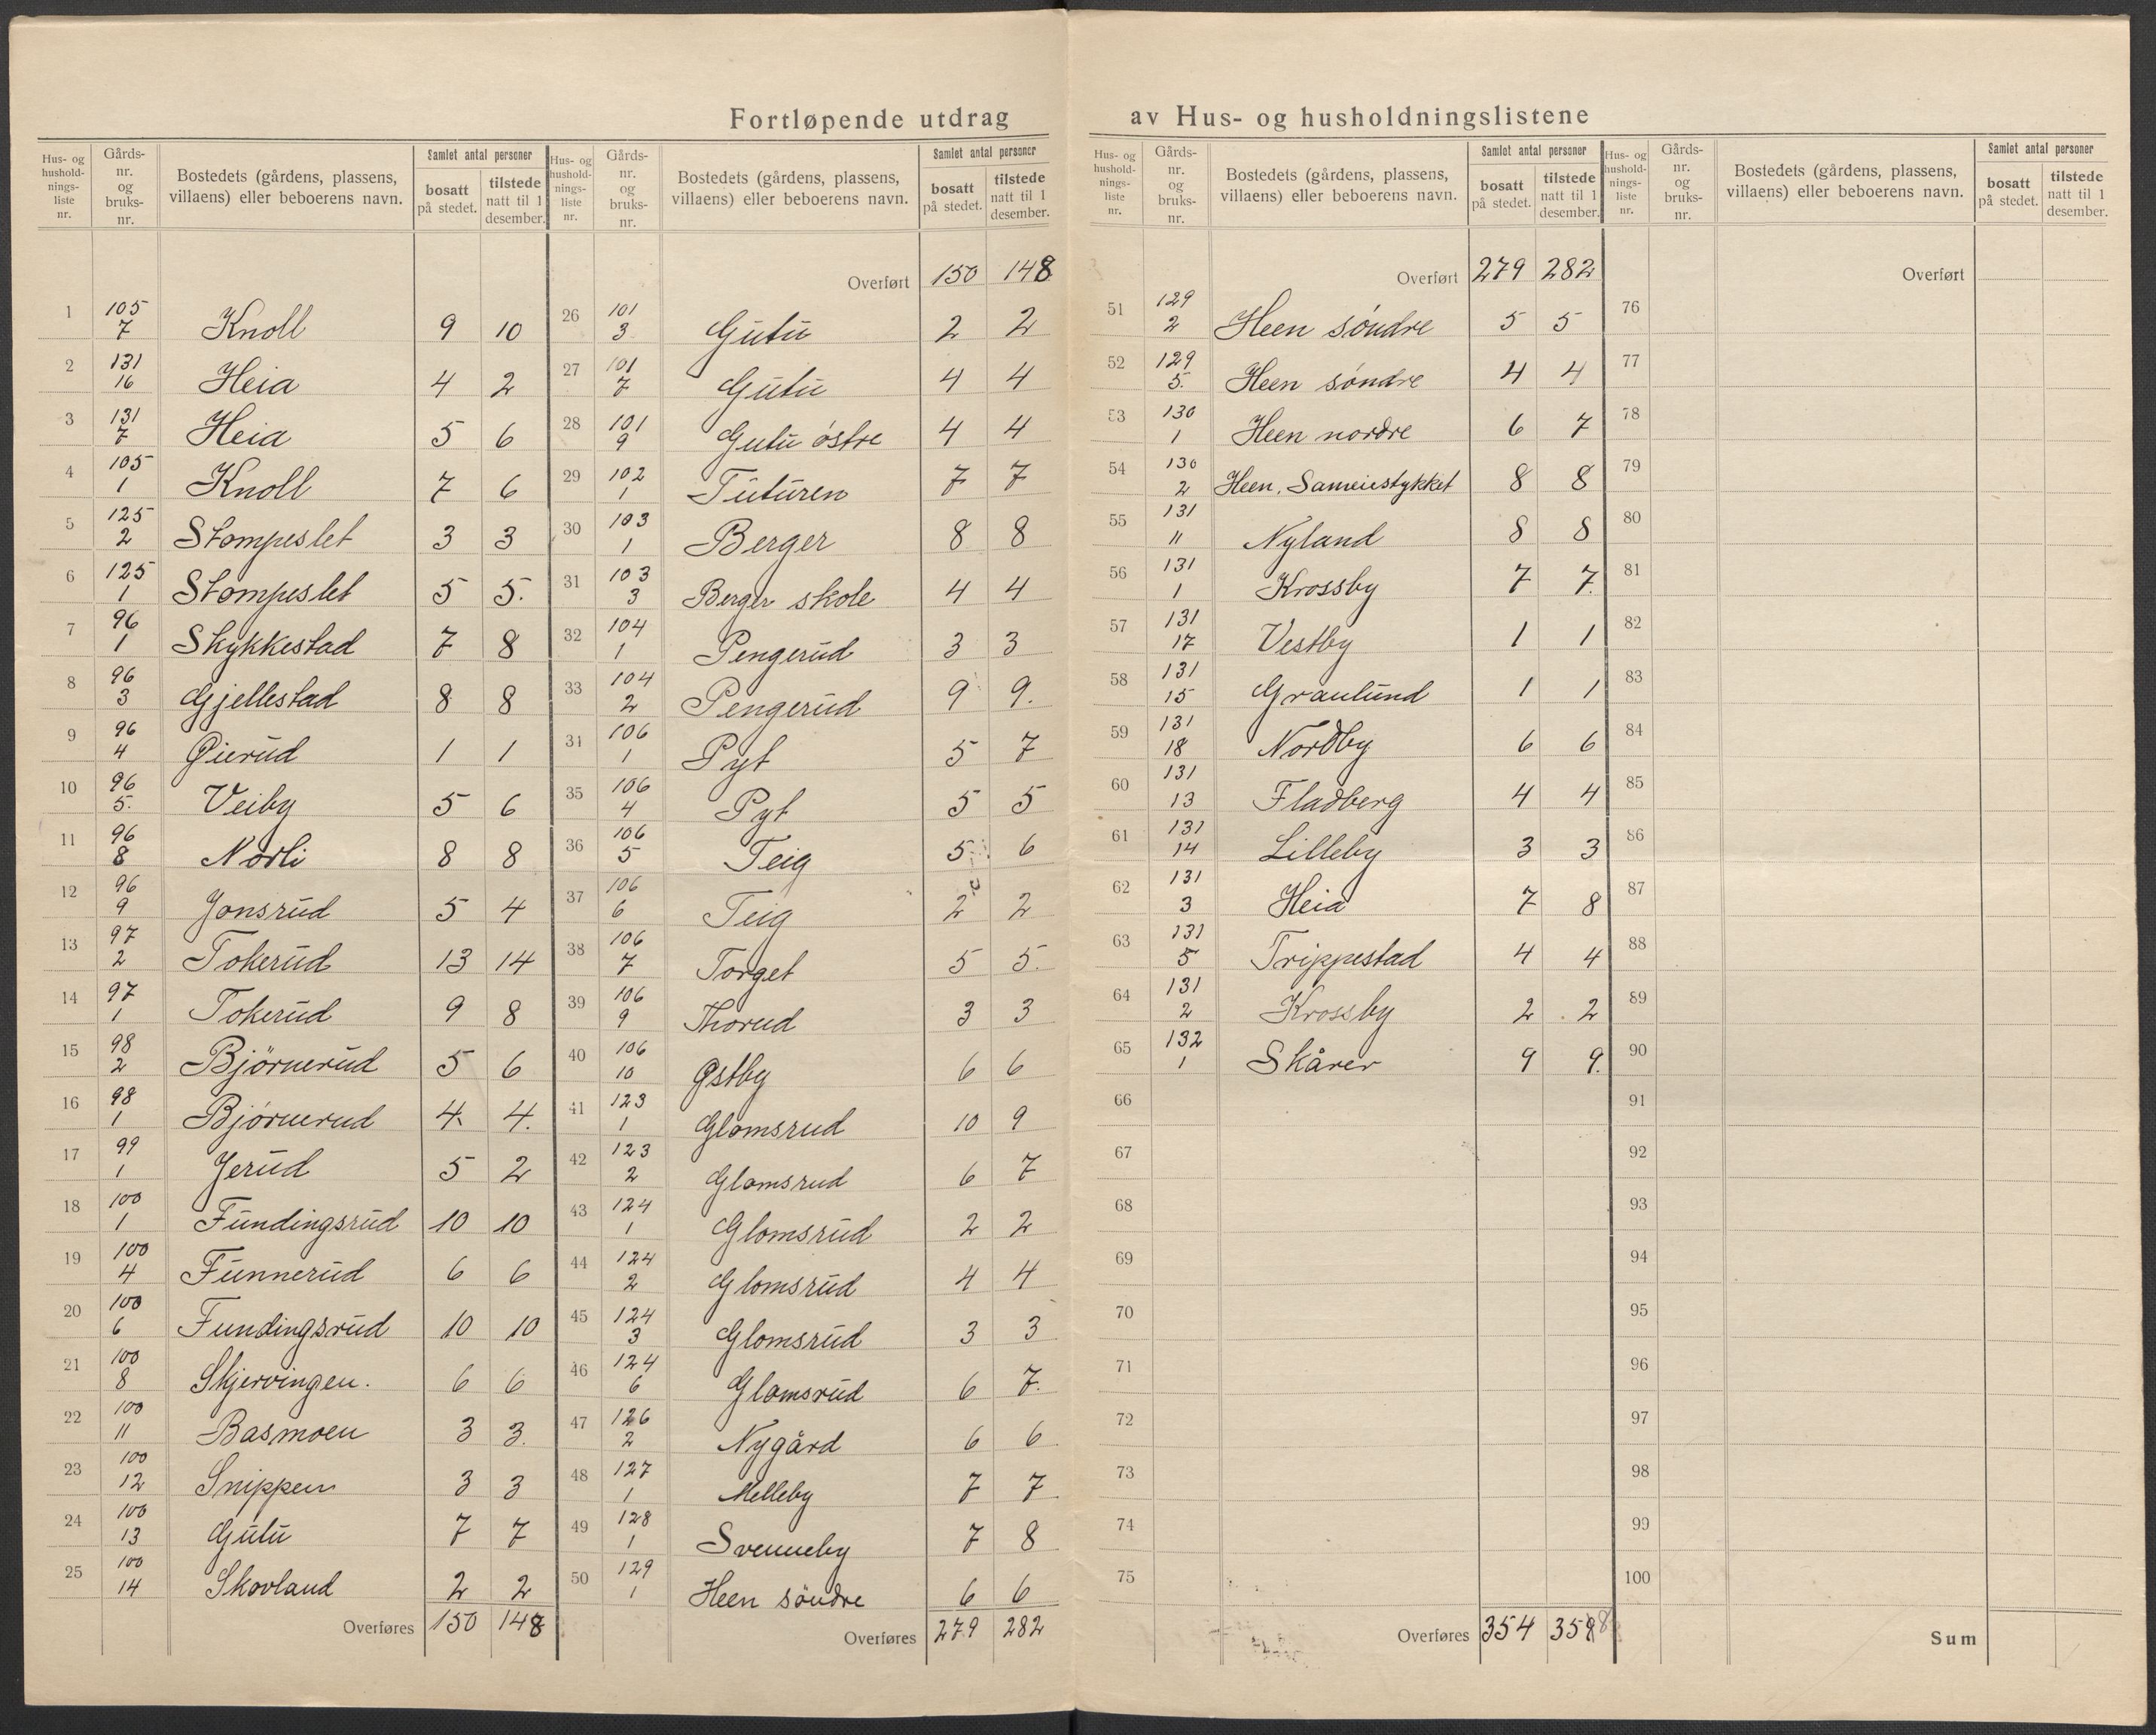 Fortløpende utdrag av Hus- og husholdningslistene
Hus- og hushold-nings-liste nr. | Gårds-nr. og bruks-nr. | Bostedets (gårdens, plassens, villaens) eller beboerens navn. | Samlet antal personer | bosatt på stedet. | tilstede natt til 1 desember.
1 105 7 Knoll 9 10
2 131 16 Heia 4 2
3 131 7 Heia 5 6
4 105 1 Knoll 7 6
5 125 2 Stompeslet 3 3
6 125 1 Stompeslet 5 5.
7 96 1 Skykkestad 7 8
8 96 3 Gjellestad 8 8
9 96 4 Øierud 1 1
10 96 5. Veiby 5 6
11 96 8 Nordli 8 8
12 96 9 Jonsrud 5 4
13 97 2 Tokerud 13 14
14 97 1 Tokerud 9 8
15 98 2 Bjørnerud 5 6
16 98 1 Bjørnerud 4 4.
17 99 1 Jerud 5 2
18 100 1 Fundingsrud 10 10
19 100 4 Funnerud 6 6
20 100 6 Fundingsrud 10 10
21 100 8 Skjervingen. 6 6
22 100 11 Basmoen 3 3.
23 100 12 Snippen 3 3
24 100 13 Gutu 7 7
25 100 14 Skovland 2 2
Overføres 150 148
Hus- og hushold-nings-liste nr. | Gårds-nr. og bruks-nr. | Bostedets (gårdens, plassens, villaens) eller beboerens navn. | Samlet antal personer | bosatt på stedet. | tilstede natt til 1 desember.
Overført 150 148
26 101 3 Gutu 2 2
27 101 7 Gutu 4 4
28 101 9 Gutu østre 4 4
29 102 1 Tuturen 7 7
30 103 1 Berger 8 8
31 103 3 Berger skole 4 4
32 104 1 Pengerud 3 3
33 104 2 Pengerud 9 9.
34 106 1 Pyt 5 7
35 106 4 Pyt 5 5
36 106 5 Teig 5 6
37 106 6 Teig 2 2
38 106 7 Torget 5 5.
39 106 9 Thorud 3 3
40 106 10 Østby 6 6
41 123 1 Glomsrud 10 9
42 123 2 Glomsrud 6 7
43 124 1 Glomsrud 2 2
44 124 2 Glomsrud 4 4
45 124 3 Glomsrud 3 3
46 124 6 Glomsrud 6 7.
47 126 2 Nygård 6 6
48 127 1 Melleby 7 7
49 128 1 Svenneby 7 8
50 129 1 Heen søndre 6 6
Overføres 279 282
Hus- og hushold-nings-liste nr. | Gårds-nr. og bruks-nr. | Bostedets (gårdens, plassens, villaens) eller beboerens navn. | Samlet antal personer | bosatt på stedet. | tilstede natt til 1 desember.
Overført 279 282
51 129 2 Heen søndre 5 5
52 129 5. Heen søndre 4 4
53 130 1 Heen nordre 6 7
54 130 2 Heen, Sameiestykket 8 8
55 131 11 Nyland 8 8
56 131 1 Krossby 7 7.
57 131 17 Vestby 1 1
58 131 15 Granlund 1 1
59 131 18 Nordby 6 6
60 131 13 Fladberg 4 4
61 131 14 Lilleby 3 3
62 131 3 Heia 7 8
63 131 5 Trippestad 4 4
64 131 2 Krossby 2 2
65 132 1 Skårer 9 9.
66
67
68
69
70
71
72
73
74
75
Overføres 354 359 8
Hus- og hushold-nings-liste nr. | Gårds-nr. og bruks-nr. | Bostedets (gårdens, plassens, villaens) eller beboerens navn. | Samlet antal personer | bosatt på stedet. | tilstede natt til 1 desember.
Overført
76
77
78
79
80
81
82
83
84
85
86
87
88
89
90
91
92
93
94
95
96
97
98
99
100
Sum